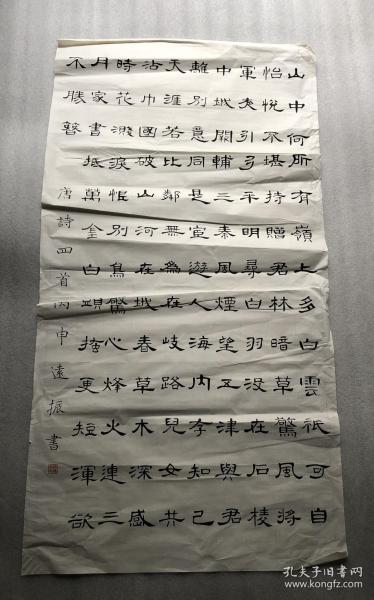 山中何所有嶺上多白雲祇可自
怡悅不堪持贈君林暗草驚風將
軍夜引弓平明尋白羽沒在石棱
中城闕輔三秦風煙望五津與君
離別意同是宦遊人海內存知己
天涯若比鄰無為在岐路兒女共
沾巾國破山河在城春草木深感
時花濺淚恨別鳥驚心烽火連三
月家書抵萬金白頭搔更短渾欲
不勝簪
唐詩四首丙申遠振書
孔夫子旧书网
book.kongfz.com